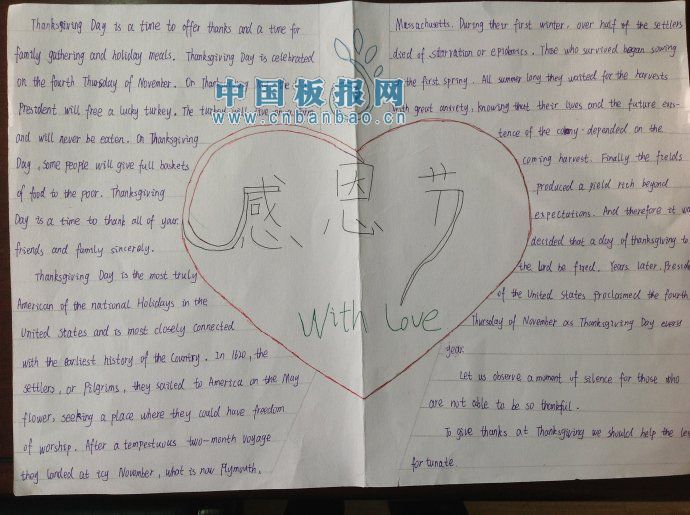 Thanksgiving Day is a time to offer thanks and a time for
family gathering and holiday meals. Thanksgiving Day is celebrated
on the fourth Thursday of November. On Thanksgiving
President will free a lucky turkey. The turkey will live
and will never be eaten. On Thanksgiving
Day, some people will give full baskets
of food to the poor. Thanksgiving
Day is a time to thank all of your
friends and family sincerely.
Thanksgiving Day is the most truly
American of the national Holidays in the
United States and is most closely connected
with the earliest history of the Country. In 1620, the
settlers, or Pilgrims, they sailed to America on the May
flower, seeking a place where they could have freedom
of worship. After a tempestuous two-month voyage
they landed at icy November, what is now Plymouth,
中国板报网
www.cnbanbao.cn
感恩节
With Love
Massachusetts. During their first winter, over half of the settlers
died of starvation or epidemics. Those who survived began sowing
the first spring. All summer long they waited for the harvests
with great anxiety, knowing that their lives and the future exis-
tence of the colony depended on the
coming harvest. Finally the fields
produced a yield rich beyond
expectations. And therefore it was
decided that a day of thanksgiving to
the lord be fixed. Years later, Presid
of the United States proclaimed the fourth
Thursday of November as Thanksgiving Day every
year.
Let us observe a moment of silence for those who
are not able to be so thankful.
To give thanks at Thanksgiving we should help the le
fortunate.